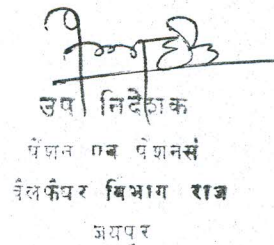 उप निदेशक
पेंशन एवं पेशनर्स
वैलफेयर विभाग राज
जयपुर